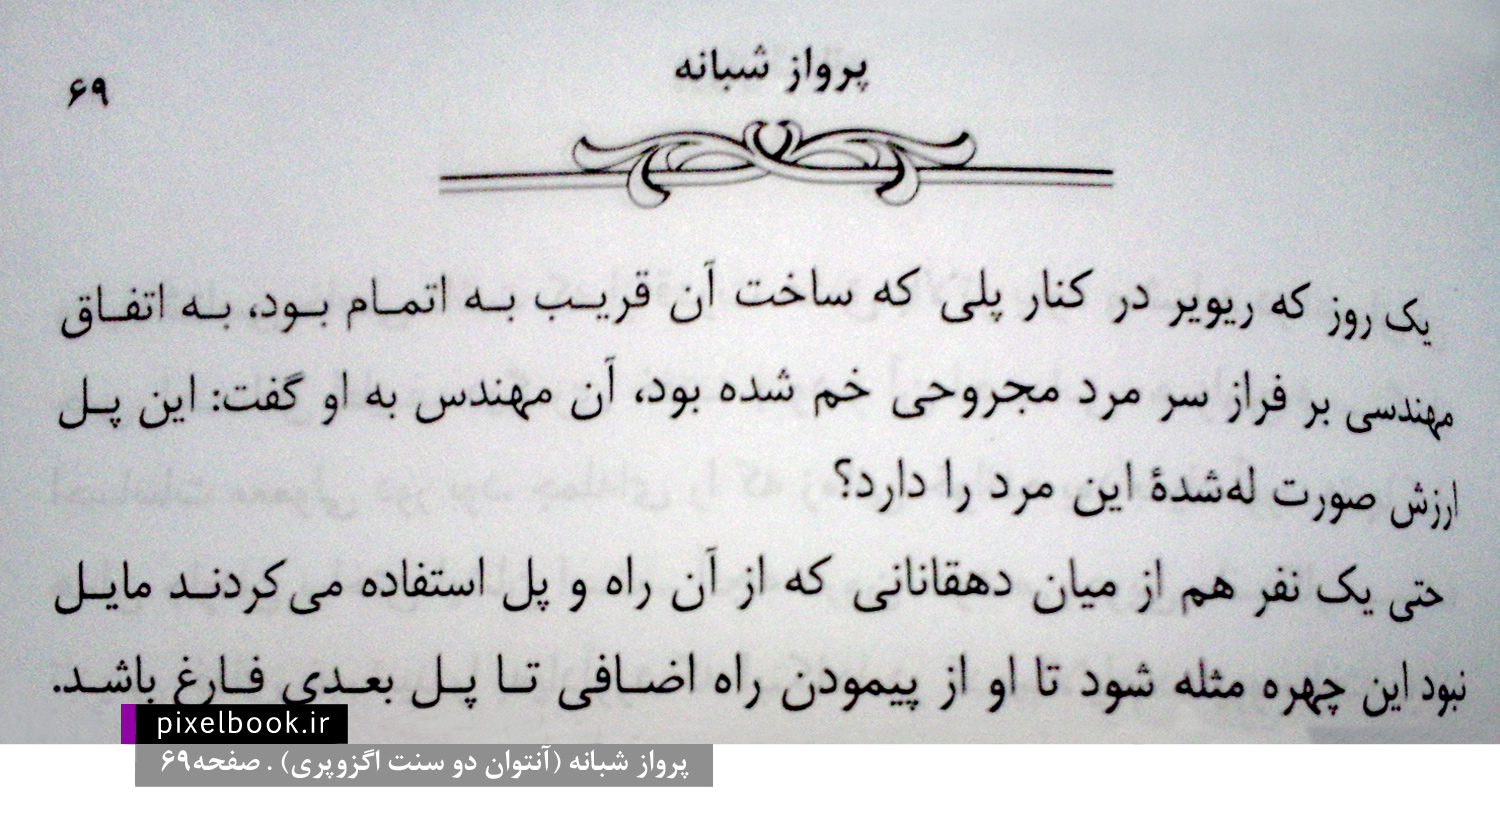 پرواز شبانه
۶۹
یک روز که ریویر در کنار پلی که ساخت آن قریب به اتمام بود، به اتفاق
مهندسی بر فراز سر مرد مجروحی خم شده بود، آن مهندس به او گفت: این پل
ارزش صورت له‌شدهٔ این مرد را دارد؟
حتی یک نفر هم از میان دهقانانی که از آن راه و پل استفاده می‌کردند مایل
نبود این چهره مثله شود تا او از پیمودن راه اضافی تا پل بعدی فارغ باشد.
pixelbook.ir
پرواز شبانه (آنتوان دو سنت اگزوپری) . صفحه۶۹